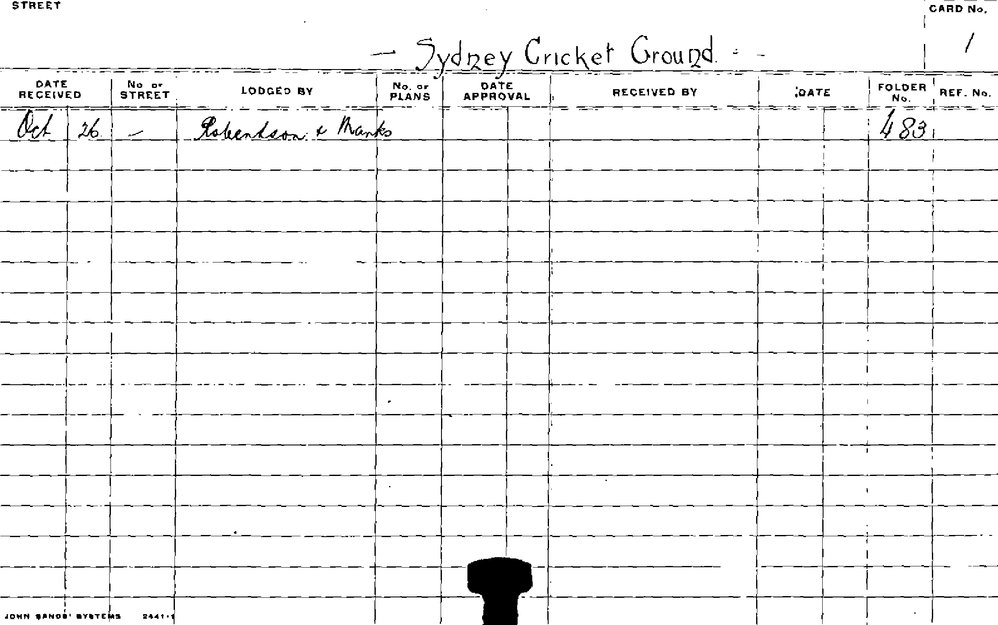 STREET
CARD No.
— Sydney Cricket Ground. —
1
DATE RECEIVED No of STREET LODGED BY No. of PLANS DATE APPROVAL RECEIVED BY DATE FOLDER No. REF. No.
Oct 26 — Robertson & Marks 483
JOHN SANDS' SYSTEMS 2441-1